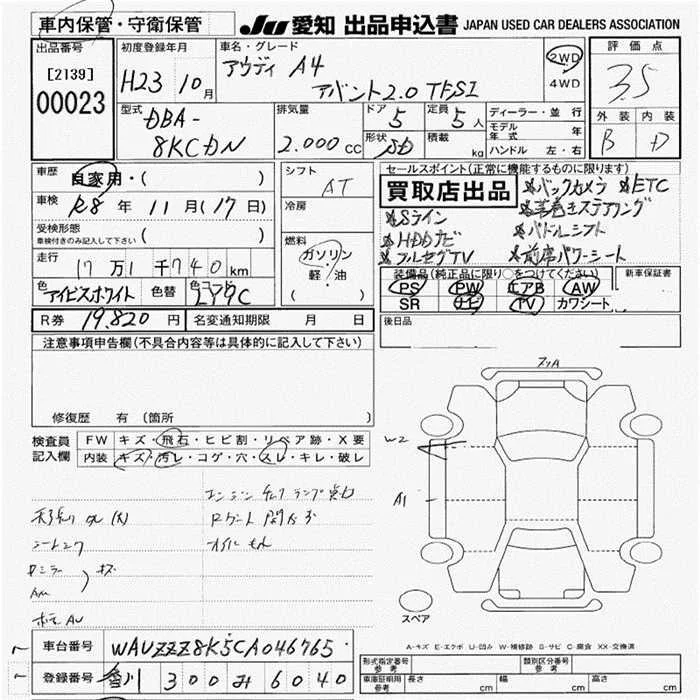 車内保管・守衛保管 JU 愛知 出品申込書 JAPAN USED CAR DEALERS ASSOCIATION
出品番号 初度登録年月 車名・グレード 評価点
[2139] H23 10月 アウディ A4 2WD 3.5
00023 アバント2.0 TFSI 4WD
型式 排気量 ドア 定員 ディーラー・並行 外装 内装
DBA- 2.000cc 5 5人 モデル年式 年 B D
8KCDN 形状 積載 kg ハンドル 左・右
車歴 自家用・( ) シフト セールスポイント(正常に機能するものに限ります)
AT 買取店出品 バックカメラ ETC
車検 R8年 11月(17日) 冷房 Sライン 革巻きステアリング
受検形態 HDDナビ パドルシフト
車検付きのみ記入して下さい ( ) 燃料 フルセグTV 前席パワーシート
走行 17万1千740km ガソリン 装備品(純正品に限り○をつけてください) 新車保証書
軽・油 PS PW エアB AW
色 アイビスホワイト 色替 色コード LY9C ( ) SR ナビ TV カワシート
R券 19.820円 名変通知期限 月 日 後日品
注意事項申告欄(不具合内容等は具体的に記入して下さい)
修復歴 有 (箇所
検査員 FW キズ・飛石・ヒビ割・リペア跡・X要 W2
記入欄 内装 キズ・汚レ・コゲ・穴・スレ・キレ・破レ
A1
エンジンチェックランプ点灯
スペア
A-キズ E-エクボ U-凹み W-補修跡 S-サビ C-腐食 XX-交換済
車台番号 WAUZZZ8K5CA046765
登録番号 香川 300 み 6040
形式指定番号 参考 類別区分番号 参考
車庫証明用 参考 長さ cm 幅 cm 高さ cm